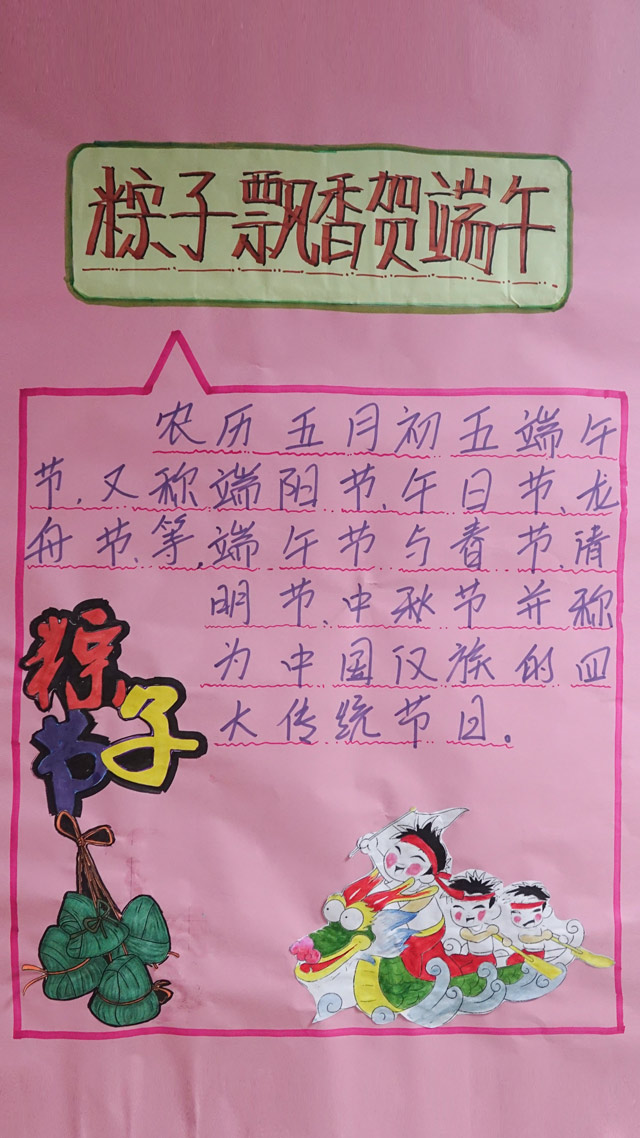 粽子飘香贺端午
农历五月初五端午
节,又称端阳节、午日节、龙
舟节、等,端午节与春节、清
明节、中秋节并称
为中国汉族的四
大传统节日。
粽子
节